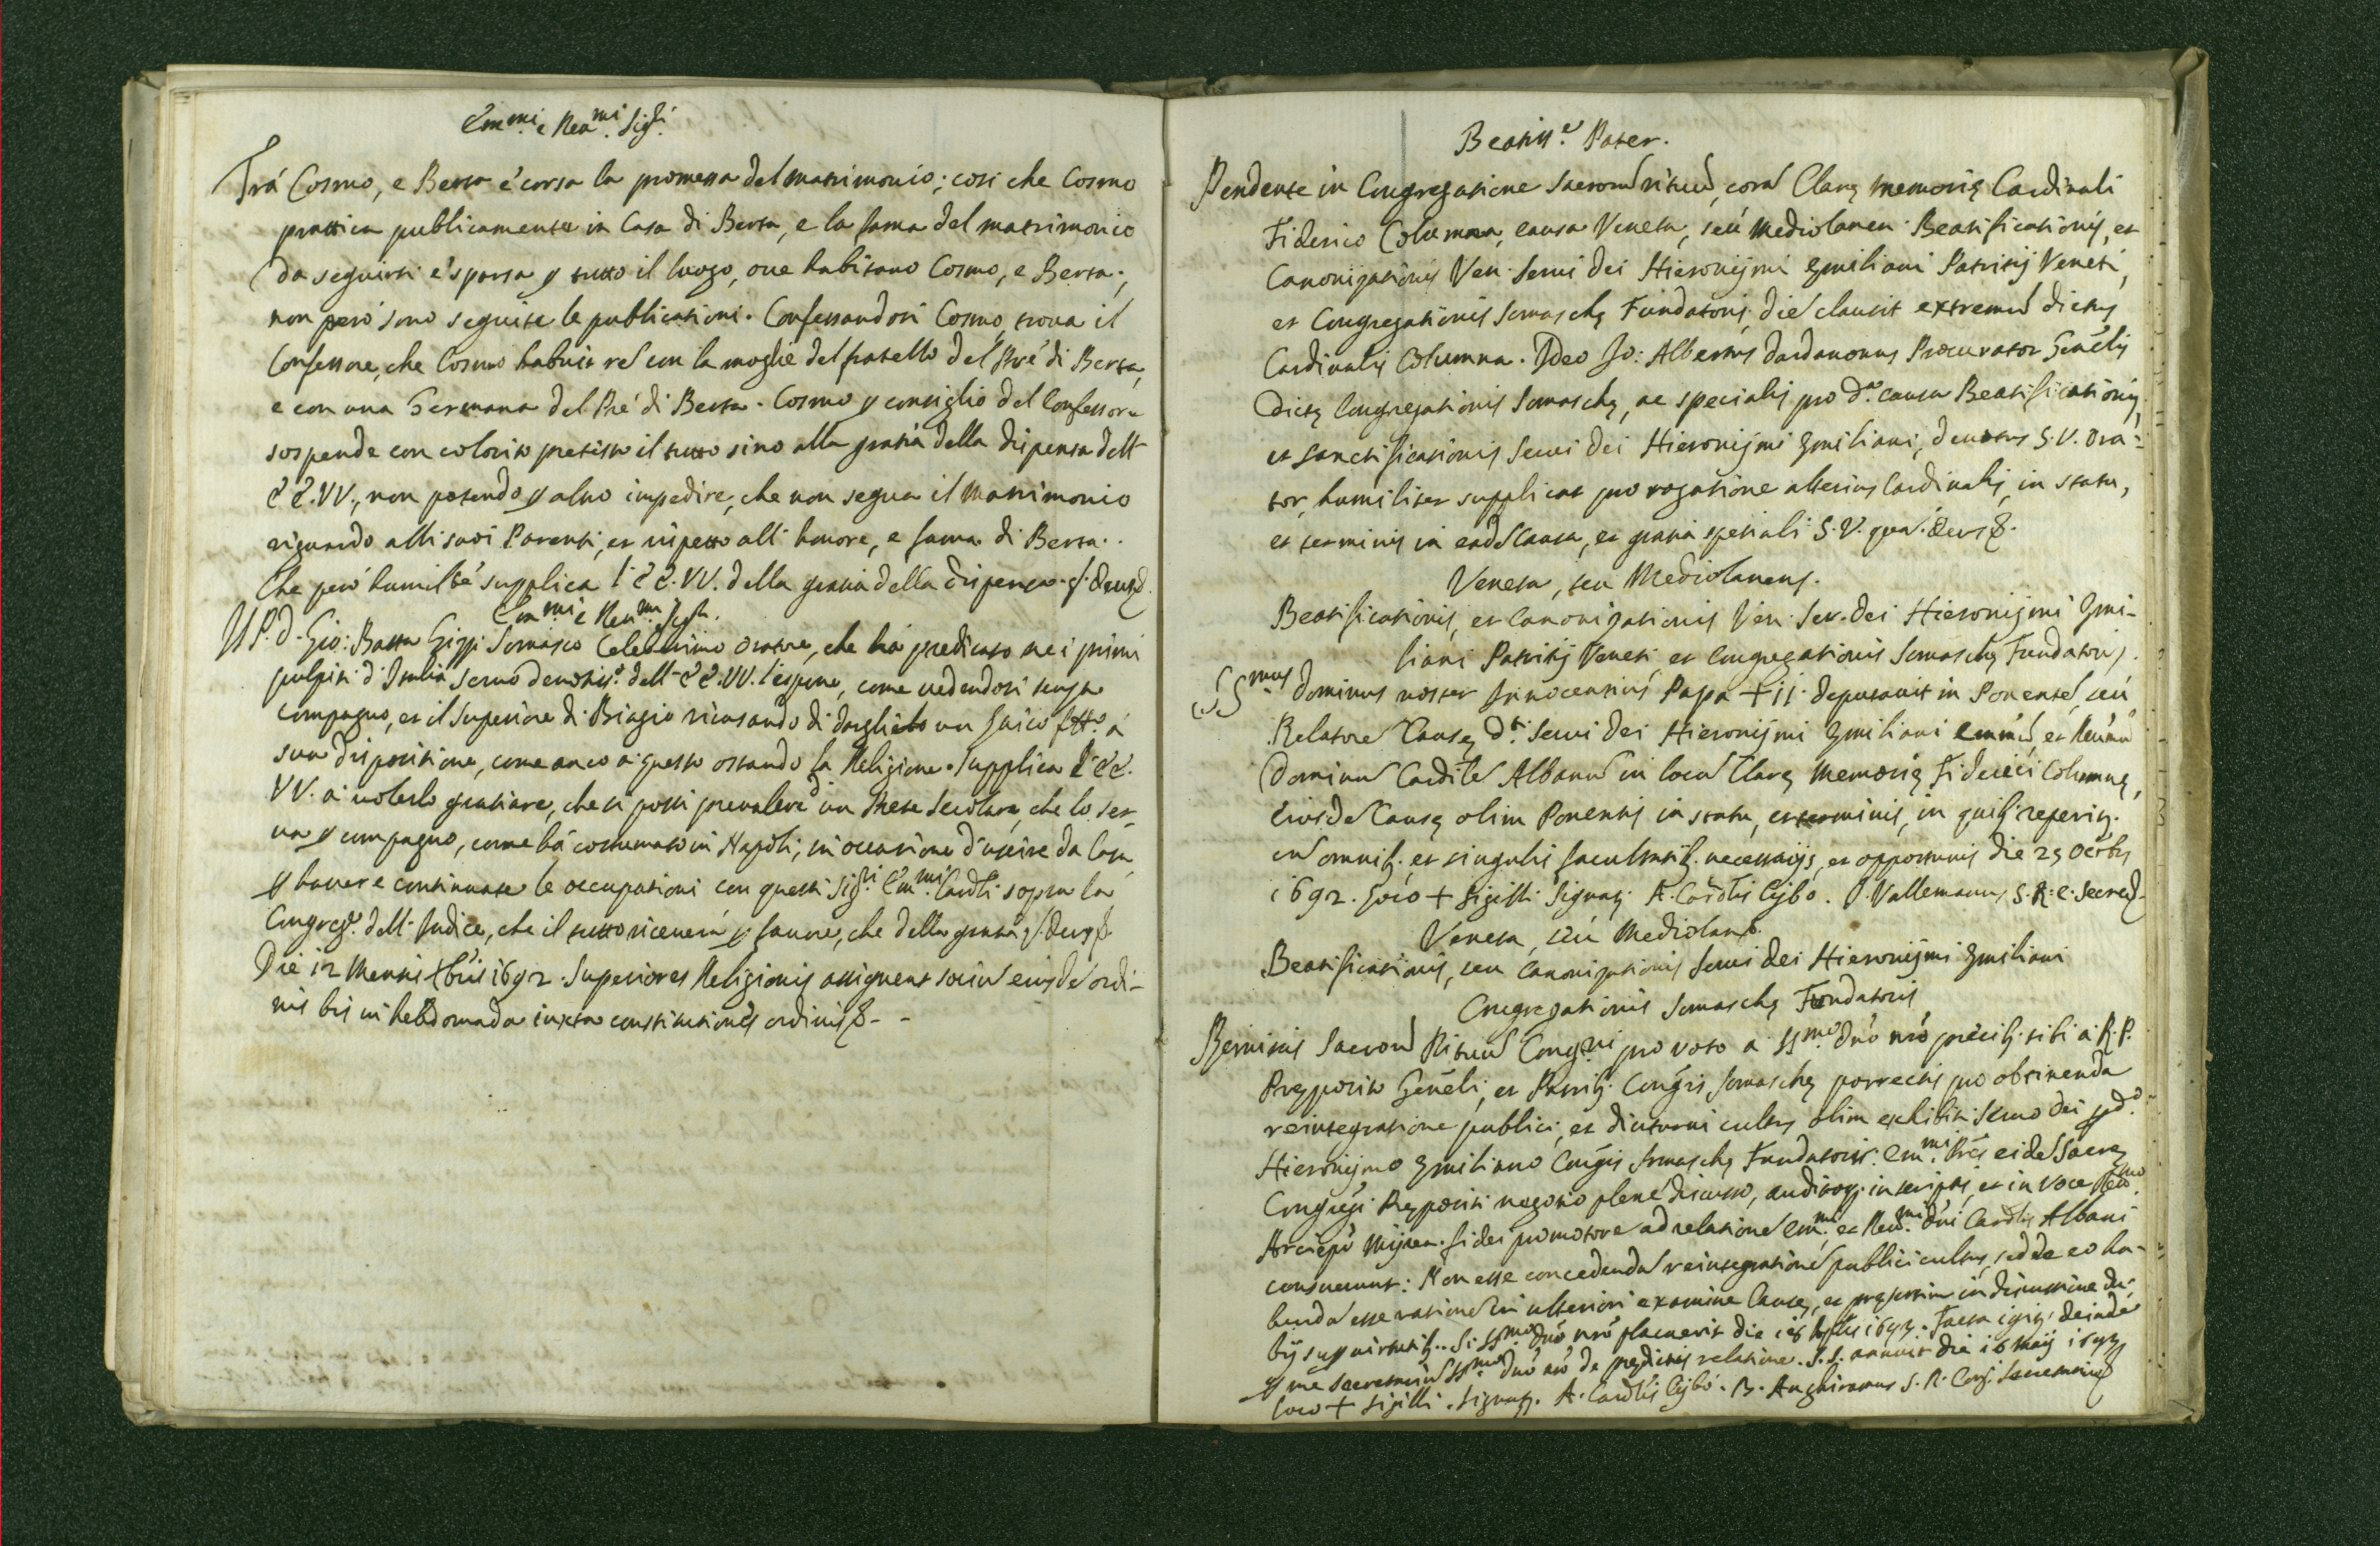 Em.mi e Reu.mi Sig.ri
Trà Cosmo, e Berta è corsa la promessa del matrimonio; così che Cosmo
prattica publicamente in Casa di Berta, e la fama del matrimonio
da seguirsi è sparsa p tutto il luogo, oue habitano Cosmo, e Berta;
non però sono seguite le publicationi. Confessandosi Cosmo, troua il
Confessore, che Cosmo habuit rē con la moglie del fratello del Prē di Berta,
e con una Germana del Prē di Berta. Cosmo p consiglio del Confessore
sospende con colorito pretisto il tutto sino alla gratia della dispensa dell'
EE.VV., non potendo p altro impedire, che non segua il Matrimonio
riguardo alli suoi Parenti, et rispetto all' honore, e fama di Berta.
Che però humilte supplica l'EE.VV. della gratia della dispensa. q. Deus
Em.mi e Reu.mi Sig.ri
Il P. D. Gio: Batta Gizzi Somasco Celeberrimo oratore, che hà predicato ne i primi
pulpiti d'Italia seruo deuotis.o dell' EE.VV. l'espone, come uedendosi senza
compagno, et il Superiore di S. Biagio ricusando di darglielo un laico a
sua dispositione, come anco a questo ostando la Religione. Supplica l'EE.
VV. a uolerlo gratiare, che si possi preualere d'un Prete Secolare, che lo ser-
ua p compagno, come hà costumato in Napoli, in occasione d'uscire da Casa,
p hauere continuate le occupationi con questi Sig.ri Em.mi Cardli sopra la
Congreg.e dell' Indice, che il tutto riceuerà p fauore, che della gratia q. Deus
Die 12 Mensis Xbris 1692. Superiores Religionis assignent sociū eiusdē ordi-
nis bis in hebdomada iuxta constitutiones ordinis
Beatiss.e Pater.
Pendente in Congregatione Sacrorū rituū, corā Clarę memorię Cardinali
Fiderico Columna, causa Veneta, seù Mediolanen. Beatificationis, et
Canonizationis Ven. Serui Dei Hieronijmi Emiliani Patritij Veneti,
et Congregationis Somaschę Fundatoris, diē clausit extremū dictus
Cardinalis Columna. Ideo Jo: Albertus Dardanonus Procurator Genēlis
Dictę Congregationis Somaschę, ac specialis pro d.a causa Beatificationis,
et sanctificationis Serui Dei Hieronijmi Emiliani, deuotus S.V. ora-
tor, humiliter supplicat pro rogatione alterius Cardinalis, in statu,
et terminis in eadē causa, ex gratia spetiali S.V. quā Deus
Veneta, seu Mediolanens.
Beatificationis, et Canonizationis Ven. Ser. Dei Hieronijmi Emi-
liani Patritij Veneti, et Congregationis Somaschę Fundatoris.
SS.mus Dominus noster Innocentius Papa XII deputauit in Ponentē, seù
Relatorē Causę d.ti Serui Dei Hieronijmi Emiliani Emmū et Reumū
Dominū Cardlē Albanū in locū Clarę Memorię Fiderici Columnę,
Eiusdē Causę olim Ponentis in statu, et terminis, in quib. reperit.
cū omnib. et singulis facultatib. necessarijs, et opportunis die 29 Octobris
1692. Loco + Sigilli Signat. A. Cardlis Cybo. J. Vallemanus S.R.C. Secret.
Veneta, seù Mediolan.
Beatificationis, seu Canonizationis Serui Dei Hieronijmi Emiliani
Congregationis Somaschę Fundatoris
Remissis Sacrorū Rituū Cong.ni pro voto a SS.mo Dnō nrō precib. sibi a R.P.
Pręposito Genēli, et Patrib. Congnis Somaschę porrectis pro obtinenda
reintegratione publici, et diuturni cultus olim exhibiti Seruo Dei pd.o
Hieronijmo Emiliano Congnis Somaschę Fundatoris: Em.mi Prēs eidē Sacrę
Congni Prępositi negotio plenē discusso, auditoq. in scriptis, et in voce Reu.mo
Arciepō Mijren. fidei promotore ad relationē Em.mi et Reu.mi Dni Cardlis Albani
censuerunt: Non esse concedendā reintegrationē publici cultus, sed de eo ha-
bendā esse rationē in ulteriori examine Causę, et pręsertim in discussione du-
bij super uirtutib.. Si SS.mo Dnō nrō placuerit die 1693. Facta igit. deinde
p me Secretariū SS.mo Dnō nrō de prędictis relatione. S.S. annuit die 16 Maij 1693
Loco + Sigilli. Signat. A. Cardlis Cybo. B. Inghiramus S.R. Cong. Secretarius